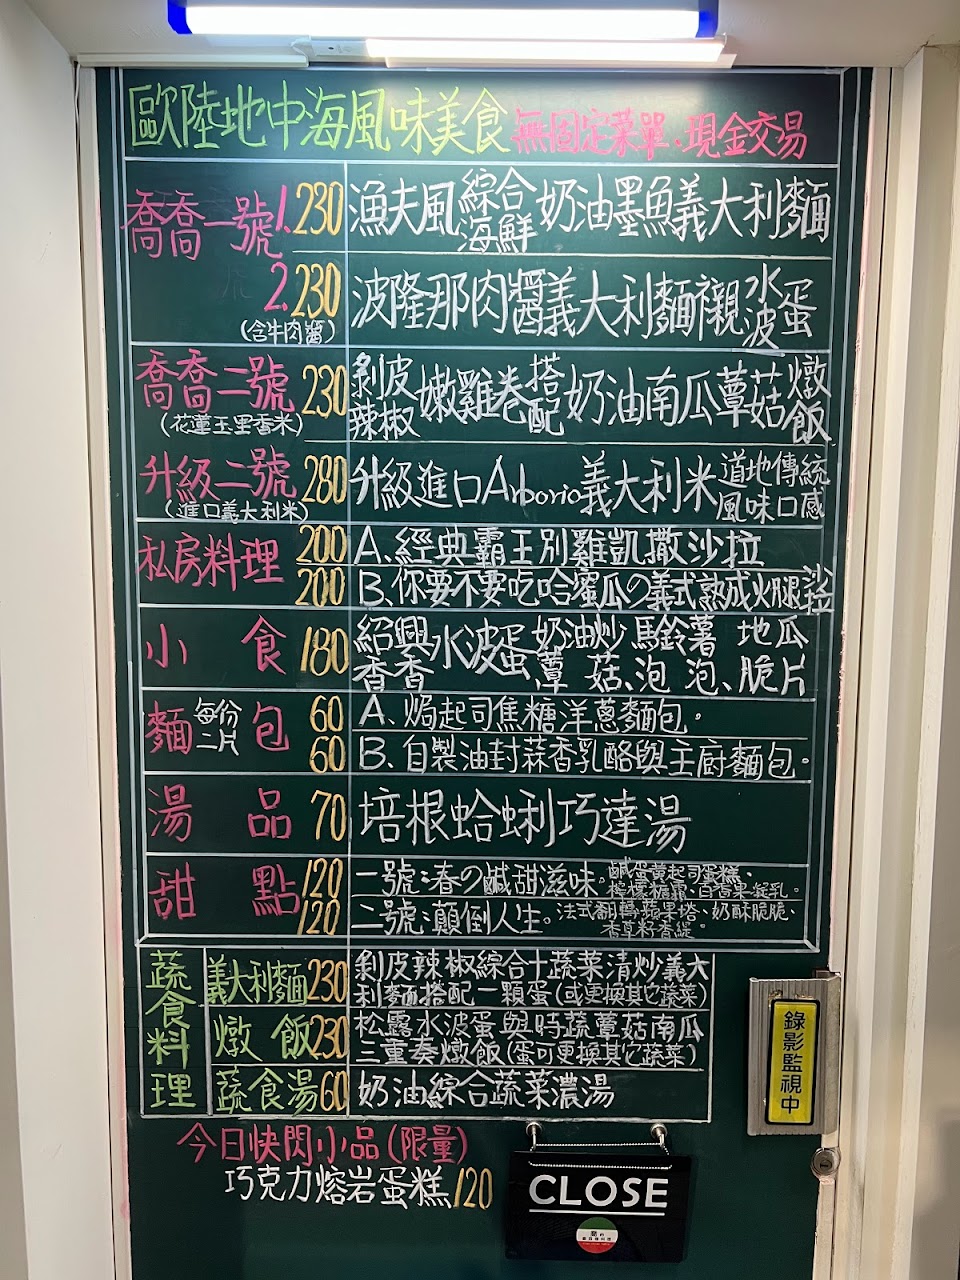 歐陸地中海風味美食 無固定菜單.現金交易
喬喬一號 1. 230 漁夫風綜合海鮮奶油墨魚義大利麵
2. 230 波隆那肉醬義大利麵襯水波蛋
(含牛肉醬)
喬喬二號 230 剝皮辣椒嫩雞卷搭配奶油南瓜蕈菇燉飯
(花蓮玉里香米)
升級二號 280 升級進口Arborio義大利米道地傳統風味口感
(進口義大利米)
私房料理 200 A、經典霸王別雞凱撒沙拉
200 B、你要不要吃哈蜜瓜の義式熟成火腿沙拉
小食 180 紹興香香水波蛋、奶油炒蕈菇、馬鈴薯泡泡、地瓜脆片
麵包 每份二片 60 A、焗起司焦糖洋蔥麵包。
60 B、自製油封蒜香乳酪與主廚麵包。
湯品 70 培根蛤蜊巧達湯
甜點 120 一號:春の鹹甜滋味。鹹蛋黃起司蛋糕、檸檬糖霜、百香果凝乳。
120 二號:顛倒人生。法式翻轉蘋果塔、奶酥脆脆、香草籽香緹。
蔬食料理
義大利麵 230 剝皮辣椒綜合十蔬菜清炒義大利麵搭配一顆蛋(或更換其它蔬菜)
燉飯 230 松露水波蛋與時蔬蕈菇南瓜三重奏燉飯(蛋可更換其它蔬菜)
蔬食湯 60 奶油綜合蔬菜濃湯
今日快閃小品(限量)
巧克力熔岩蛋糕 120
CLOSE
錄影監視中